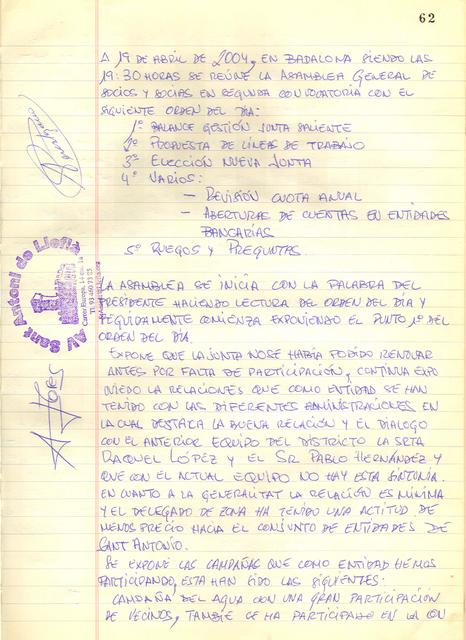 62
A 19 DE ABRIL DE 2004, EN BADALONA SIENDO LAS
19:30 HORAS SE REÚNE LA ASAMBLEA GENERAL DE
SOCIOS Y SOCIAS EN SEGUNDA CONVOCATORIA CON EL
SIGUIENTE ORDEN DEL DÍA:
1º BALANCE GESTIÓN JUNTA SALIENTE
2º PROPUESTA DE LÍNEAS DE TRABAJO
3º ELECCIÓN NUEVA JUNTA
4º VARIOS:
– REVISIÓN CUOTA ANUAL
– ABERTURAS DE CUENTAS EN ENTIDADES
BANCARIAS
5º RUEGOS Y PREGUNTAS
AV Sant Antoni de Llefià
LA ASAMBLEA SE INICIA CON LA PALABRA DEL
PRESIDENTE HACIENDO LECTURA DEL ORDEN DEL DÍA Y
SEGUIDAMENTE COMIENZA EXPONIENDO EL PUNTO 1º DEL
ORDEN DEL DÍA.
EXPONE QUE LA JUNTA NO SE HABÍA PODIDO RENOVAR
ANTES POR FALTA DE PARTICIPACIÓN, CONTINUA EXPO
NIEDO LA RELACIONES QUE COMO ENTIDAD SE HAN
TENIDO CON LAS DIFERENTES ADMINISTRACIONES EN
LA CUAL DESTACA LA BUENA RELACIÓN Y EL DIALOGO
CON EL ANTERIOR EQUIPO DEL DISTRICTO LA SRTA
RAQUEL LÓPEZ Y EL SR. PABLO HERNÁNDEZ Y
QUE CON EL ACTUAL EQUIPO NO HAY ESTA SINTONIA.
EN CUANTO A LA GENERALITAT LA RELACIÓN ES MÍNIMA
Y EL DELEGADO DE ZONA HA TENIDO UNA ACTITUD DE
MENOS PRECIO HACIA EL CONJUNTO DE ENTIDADES DE
SANT ANTONIO.
SE EXPONE LAS CAMPAÑAS QUE COMO ENTIDAD HEMOS
PARTICIPANDO, ESTA HAN SIDO LAS SIGUIENTES:
CAMPAÑA DEL AGUA CON UNA GRAN PARTICIPACIÓN
DE VECINOS, TAMBIÉ SE HA PARTICIPADO EN LA CON